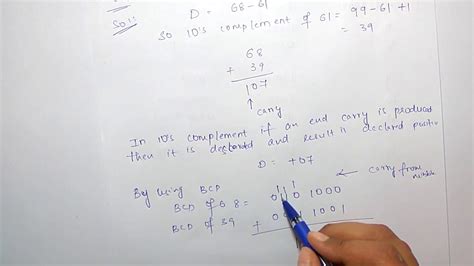 Soln:
D = 68 - 61
So 10's complement of 61 = 99 - 61 + 1
= 39
68
+ 39
107
↑
carry
In 10's complement if an end carry is produced
then it is and result is declared positive
D = +07
By using BCD
← carry from
111
BCD of 68 = 0110 1000
BCD of 39 + 1001